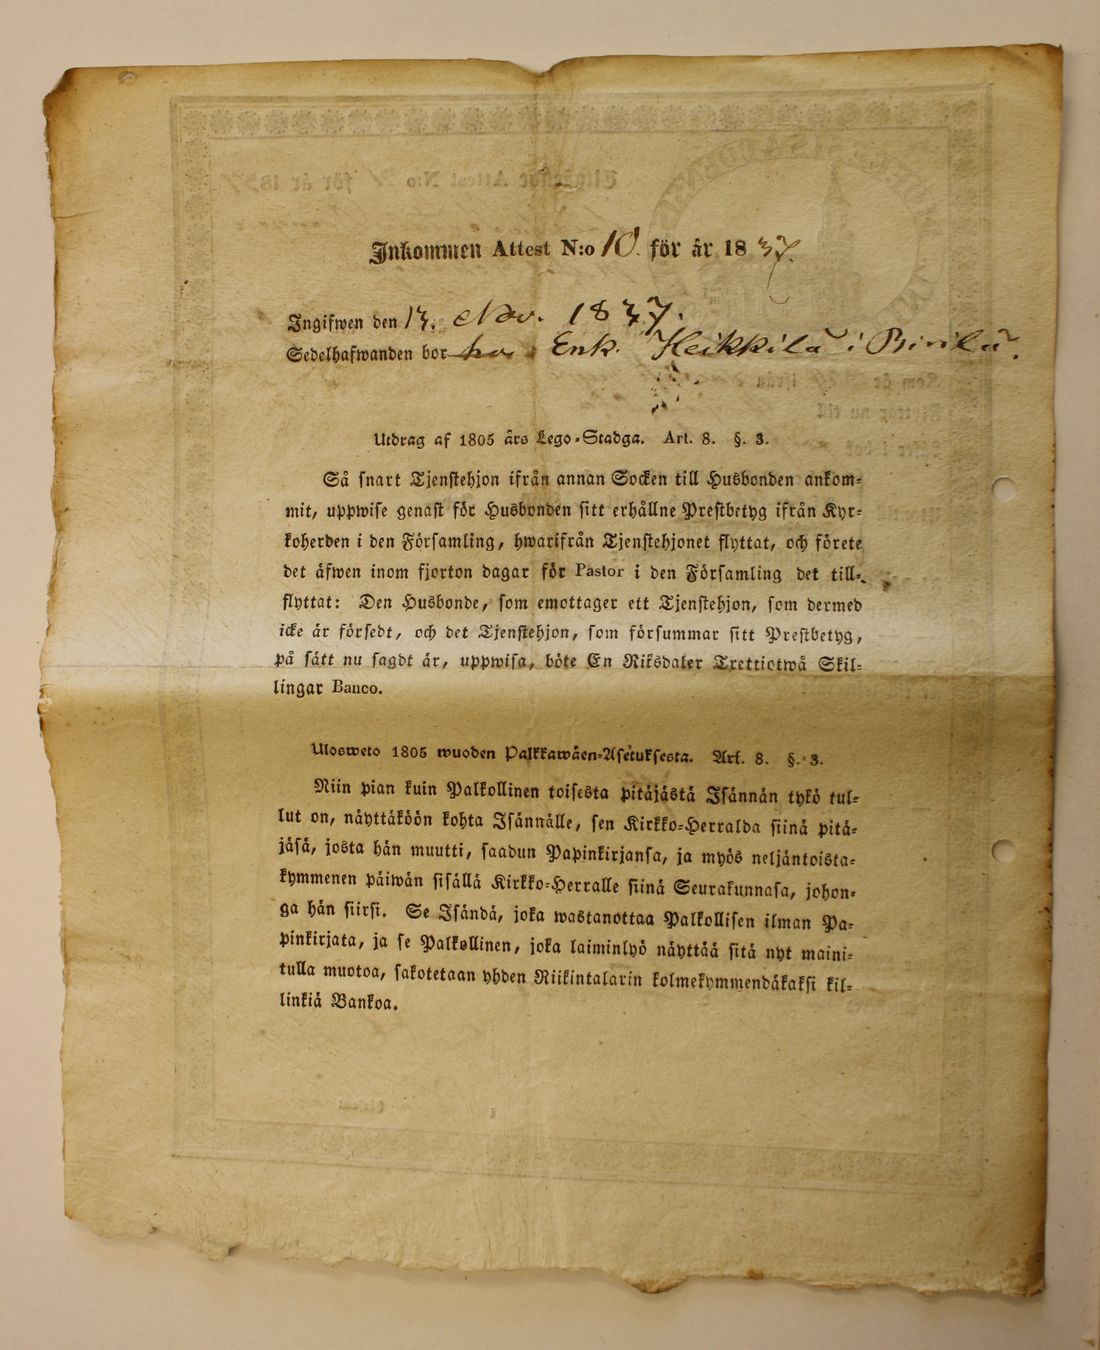 Inkommen Attest N:o 10. för år 1837.
Ingifwen den 13. Nov. 1837.
Sedelhafwanden bor hos Enk. Heikkilä i
Utdrag af 1805 års Lego-Stadga. Art. 8. §. 3.
Så snart Tjenstehjon ifrån annan Socken till Husbonden ankom-
mit, uppwise genast för Husbonden sitt erhållne Prestbetyg ifrån Kyr-
koherden i den Församling, hwarifrån Tjenstehjonet flyttat, och förete
det äfwen inom fjorton dagar för Pastor i den Församling det till-
flyttat: Den Husbonde, som emottager ett Tjenstehjon, som dermed
icke är försedt, och det Tjenstehjon, som försummar sitt Prestbetyg,
på sätt nu sagdt är, uppwisa, böte En Riksdaler Trettiotwå Skil-
lingar Banco.
Ulosweto 1805 wuoden Palkkawäen-Asetuksesta. Art. 8. §. 3.
Niin pian kuin Palkollinen toisesta pitäjästä Isännän tykö tul-
lut on, näyttäköön kohta Isännälle, sen Kirkko-Herralda siinä pitä-
jäsä, josta hän muutti, saadun Papinkirjansa, ja myös neljäntoista-
kymmenen päiwän sisällä Kirkko-Herralle siinä Seurakunnasa, johon-
ga hän siirsi. Se Isändä, joka wastanottaa Palkollisen ilman Pa-
pinkirjata, ja se Palkollinen, joka laiminlyö näyttää sitä nyt maini-
tulla muotoa, sakotetaan yhden Riikintalarin kolmekymmendäkaksi kil-
linkiä Bankoa.